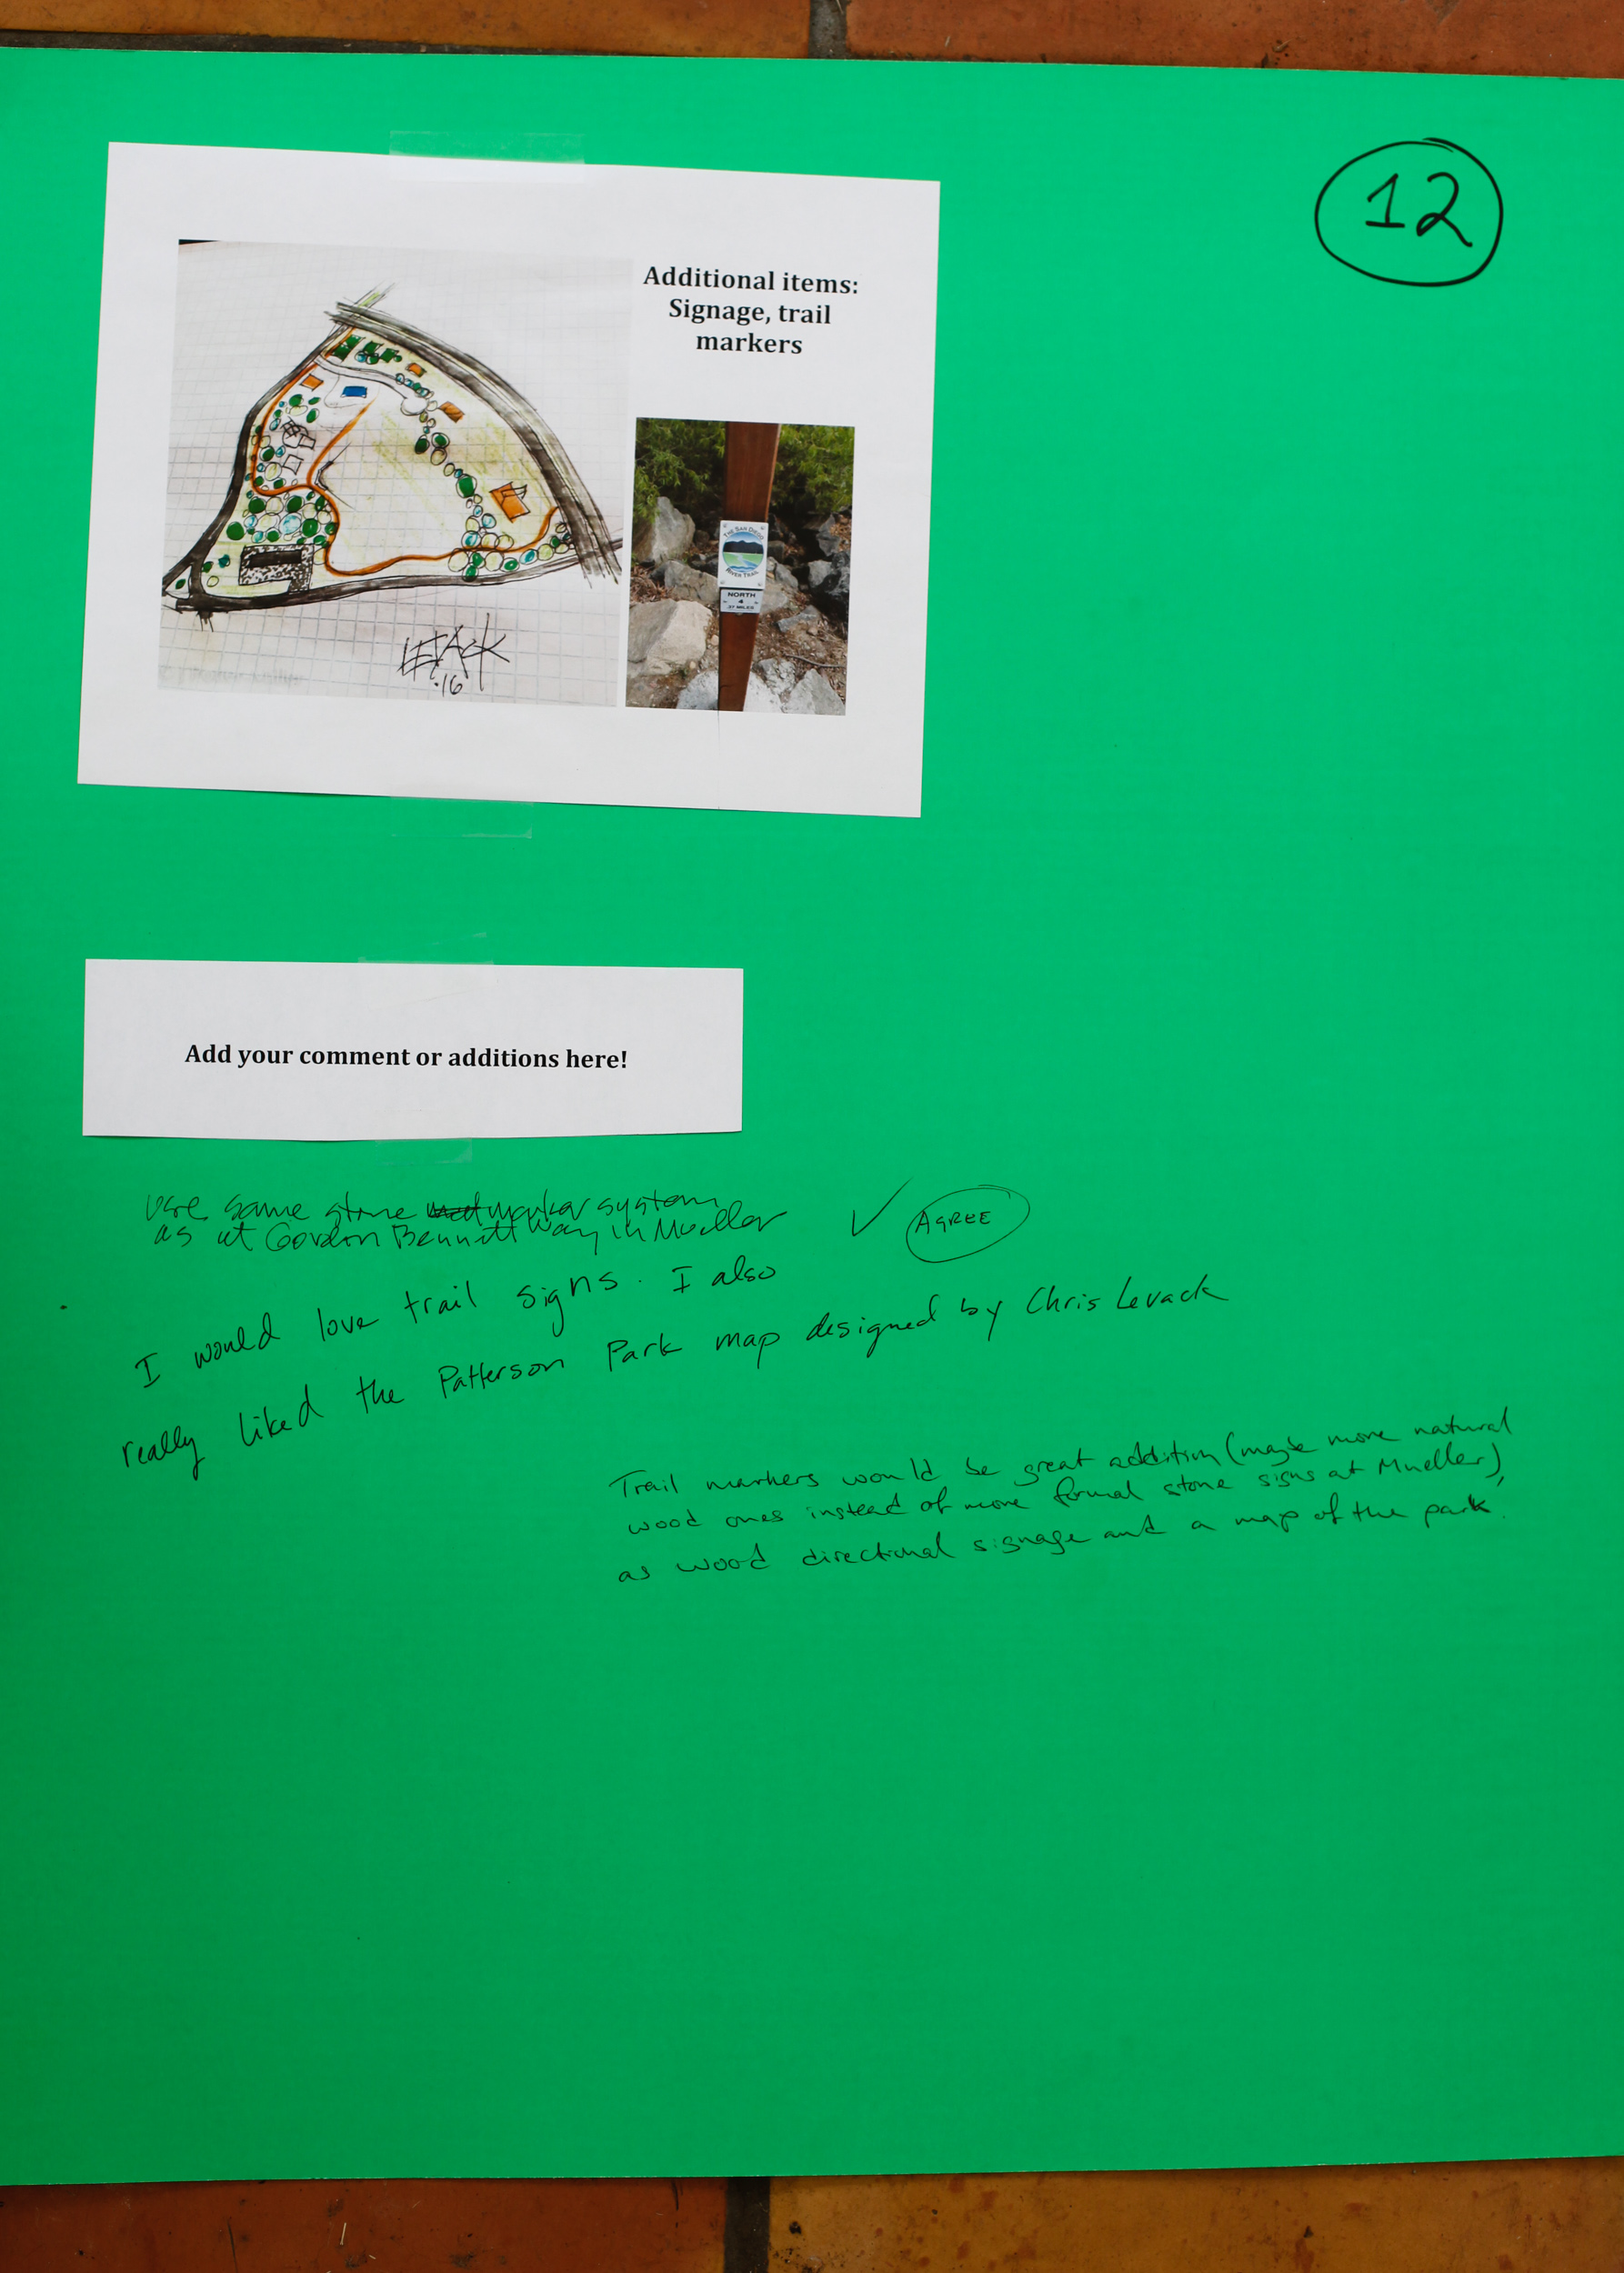 12
Additional items:
Signage, trail
markers
LEVACK
'16
THE SAN DIEGO
RIVER TRAIL
NORTH
4
.37 MILES
Add your comment or additions here!
Use same stone marker system
as at Gordon Bennett Way in Mueller
✓ AGREE
I would love trail signs. I also
really liked the Patterson Park map designed by Chris Levack
Trail markers would be great addition (maybe more natural
wood ones instead of more formal stone signs at Mueller),
as wood directional signage and a map of the park.